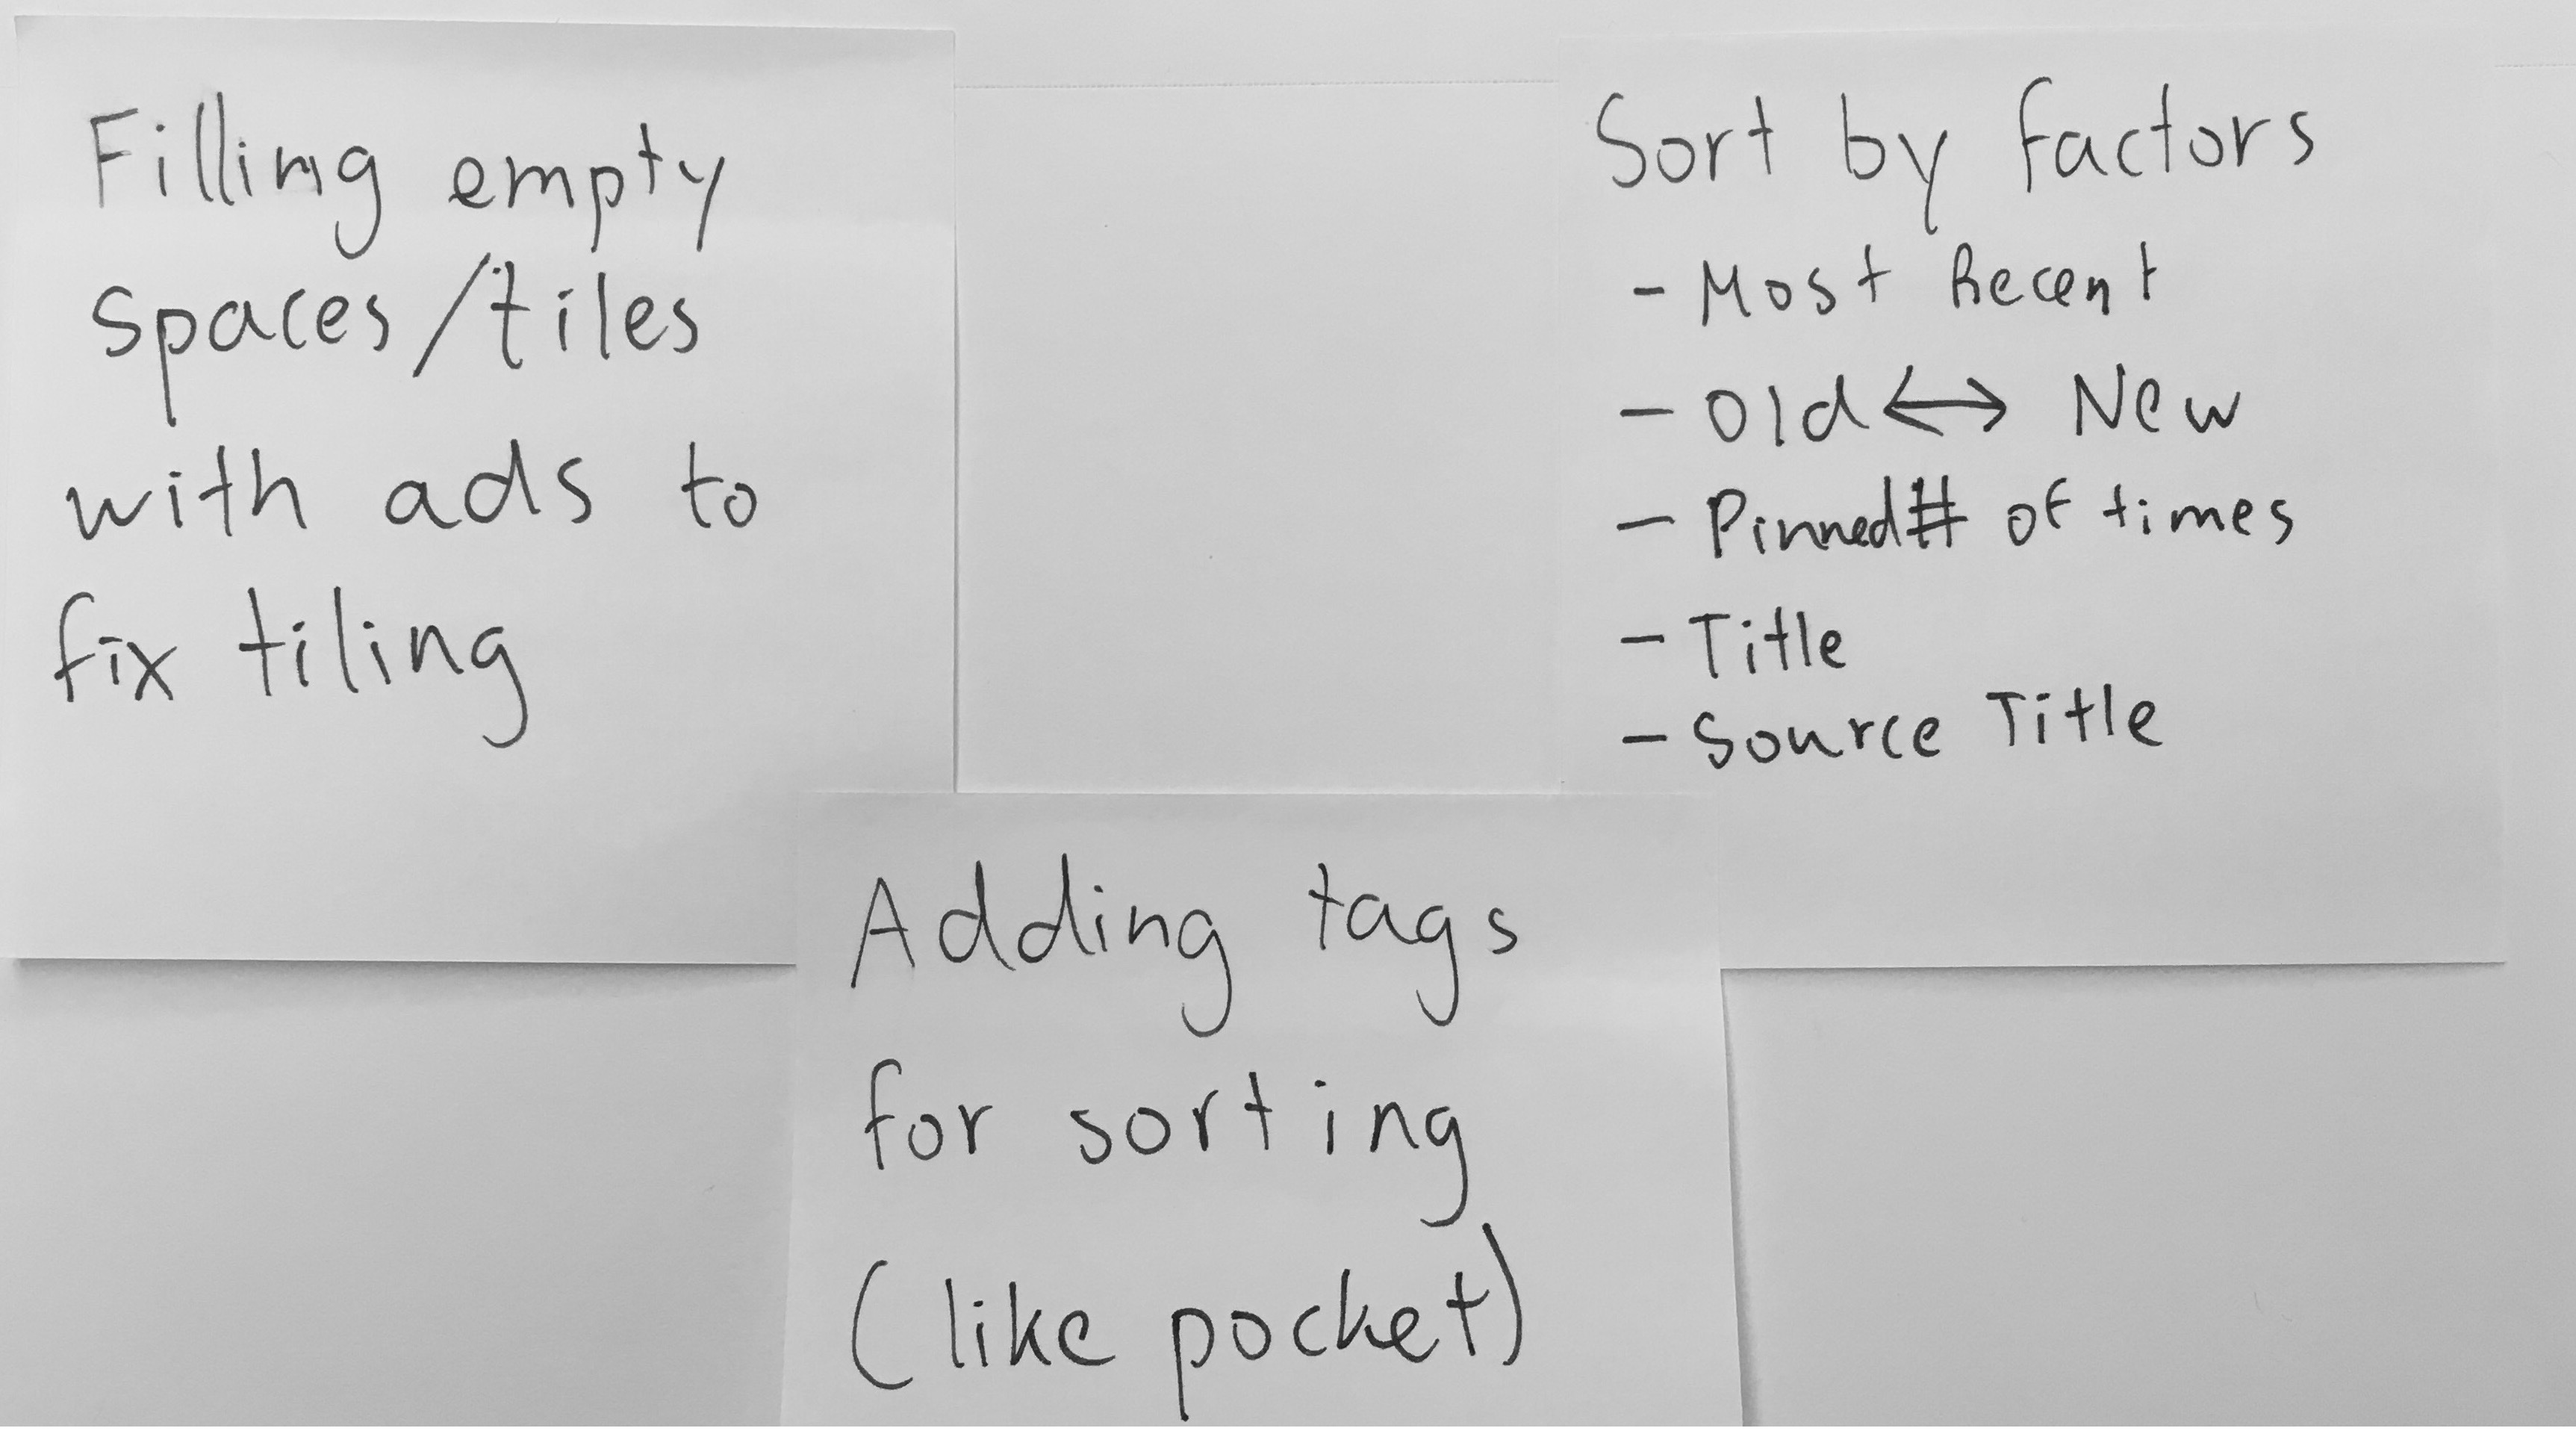 Filling empty
spaces/tiles
with ads to
fix tiling
Sort by factors
- Most Recent
- Old <-> New
- Pinned # of times
- Title
- Source Title
Adding tags
for sorting
(like pocket)